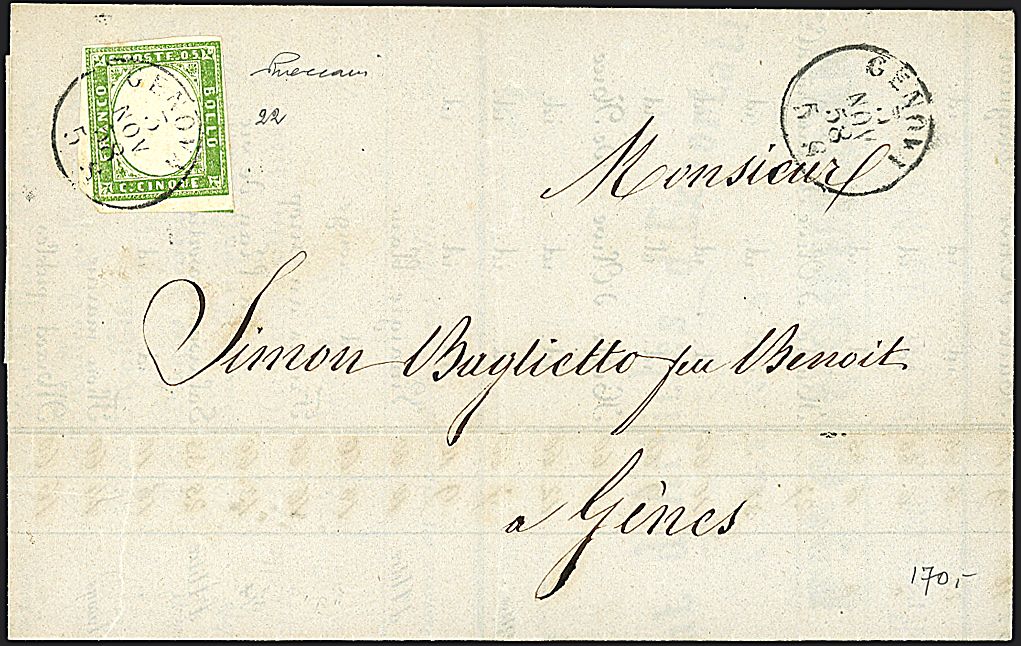 C. POSTE 05
FRANCO
BOLLO
C. CINQUE
GENOVA
NOV
58
GENOVA
NOV
58
22
Monsieur
Simon Baglietto feu Benoit
a Gênes
170,-